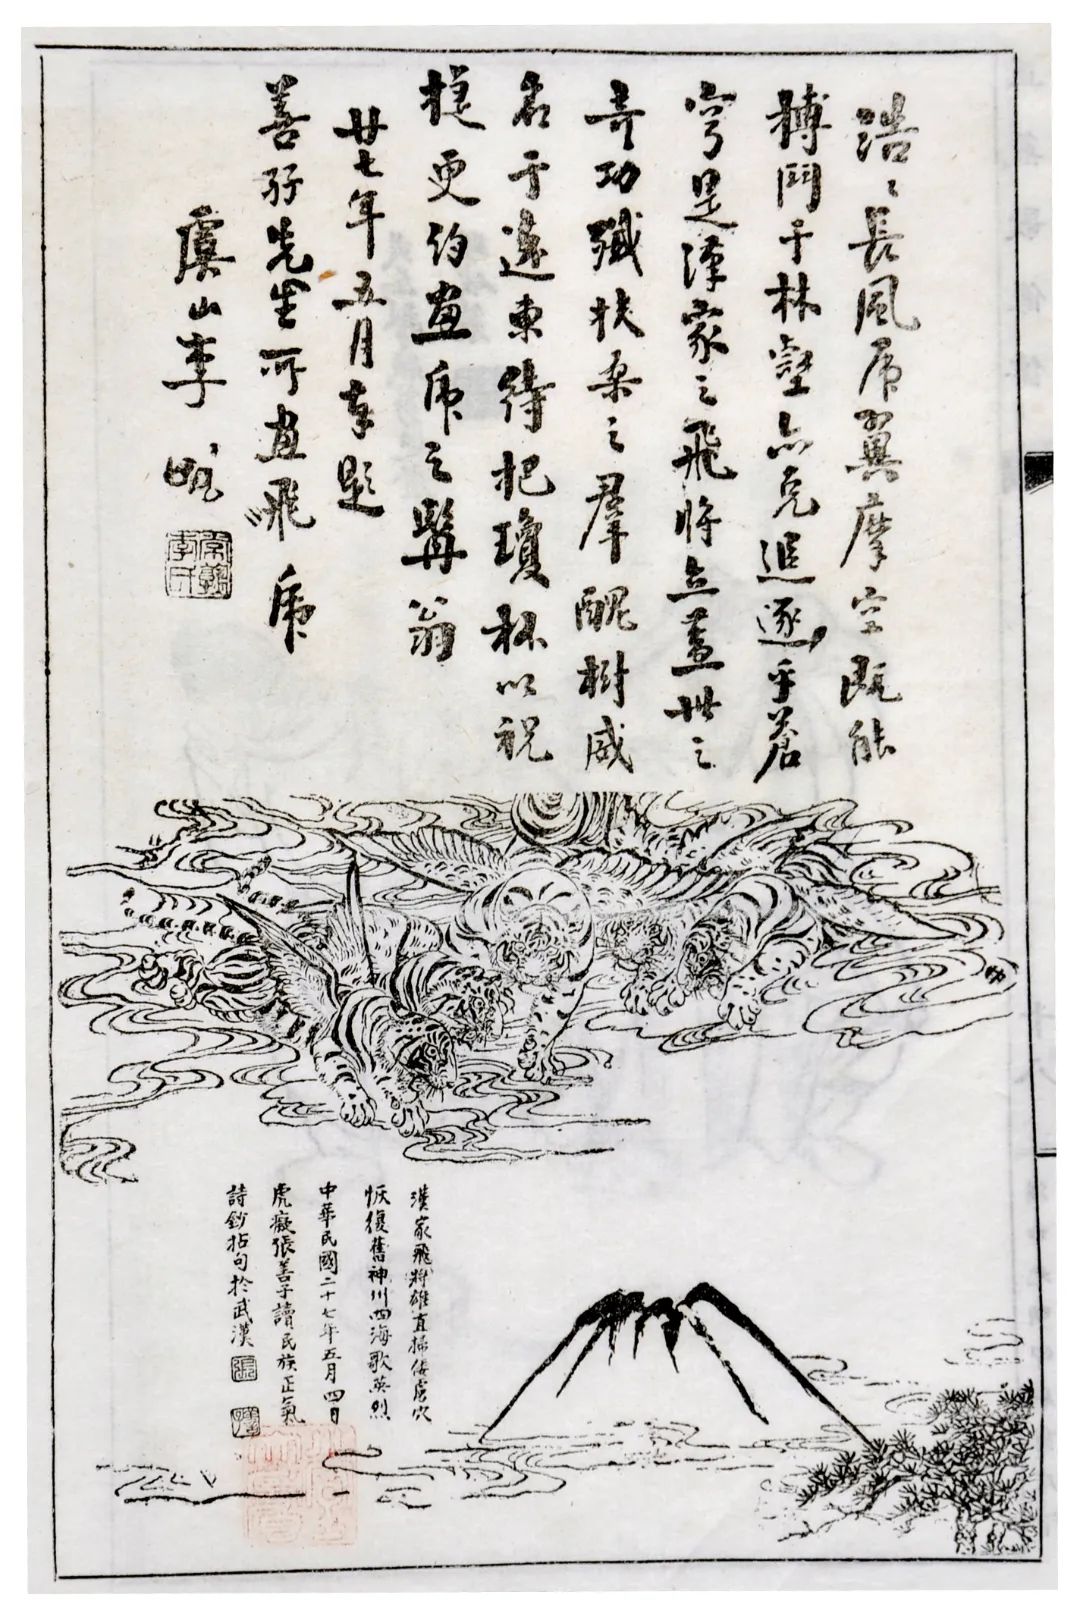 浩〻長風虎翼摩空既能
搏鬥于林壑亦克追逐乎蒼
穹是漢家之飛將立蓋世之
奇功殲扶桑之群醜樹威
名于遼東待把瓊杯以祝
捷更約畫虎之髯翁
廿七年五月奉題
善孖先生所画飛虎
虞山李
漢家飛將雄直掃倭虜穴
恢復舊神州四海歌英烈
中華民國二十七年五月四日
虎癡張善子讀民族正氣
詩鈔拈句於武漢